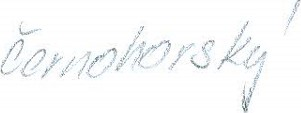 černohorský